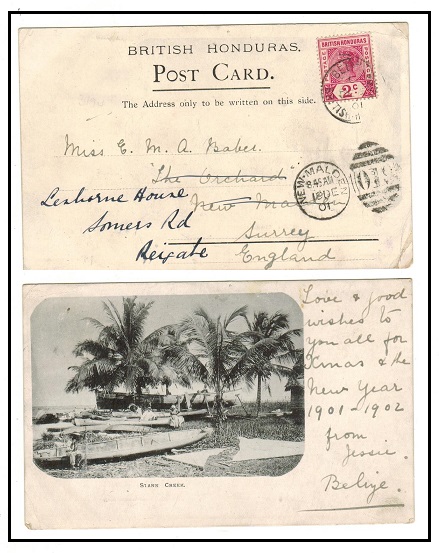 BRITISH HONDURAS.
POST CARD.
The Address only to be written on this side.
BRITISH HONDURAS
2c
Miss E. M. A. Baber.
"The Orchard"
New Ma
Lesborne House
Somers Rd
Surrey
Reigate
England
NEW-MALDEN
8.45 AM
18 DE
01
Love & good
wishes to
you all for
Xmas & the
New Year
1901-1902
from
Jessie.
Belize.
STANN CREEK.